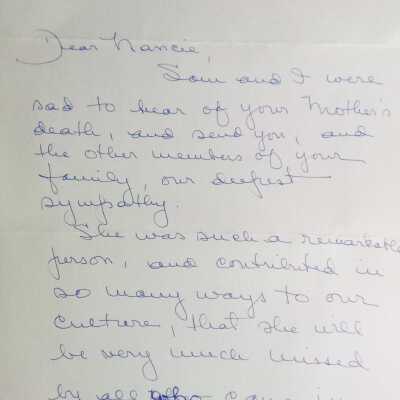 Dear Nancie,
Sam and I were
sad to hear of your Mother's
death, and send you, and
the other members of your
family, our deepest
sympathy.
She was such a remarkable
person, and contributed in
so many ways to our
culture, that she will
be very much missed
by all who came in